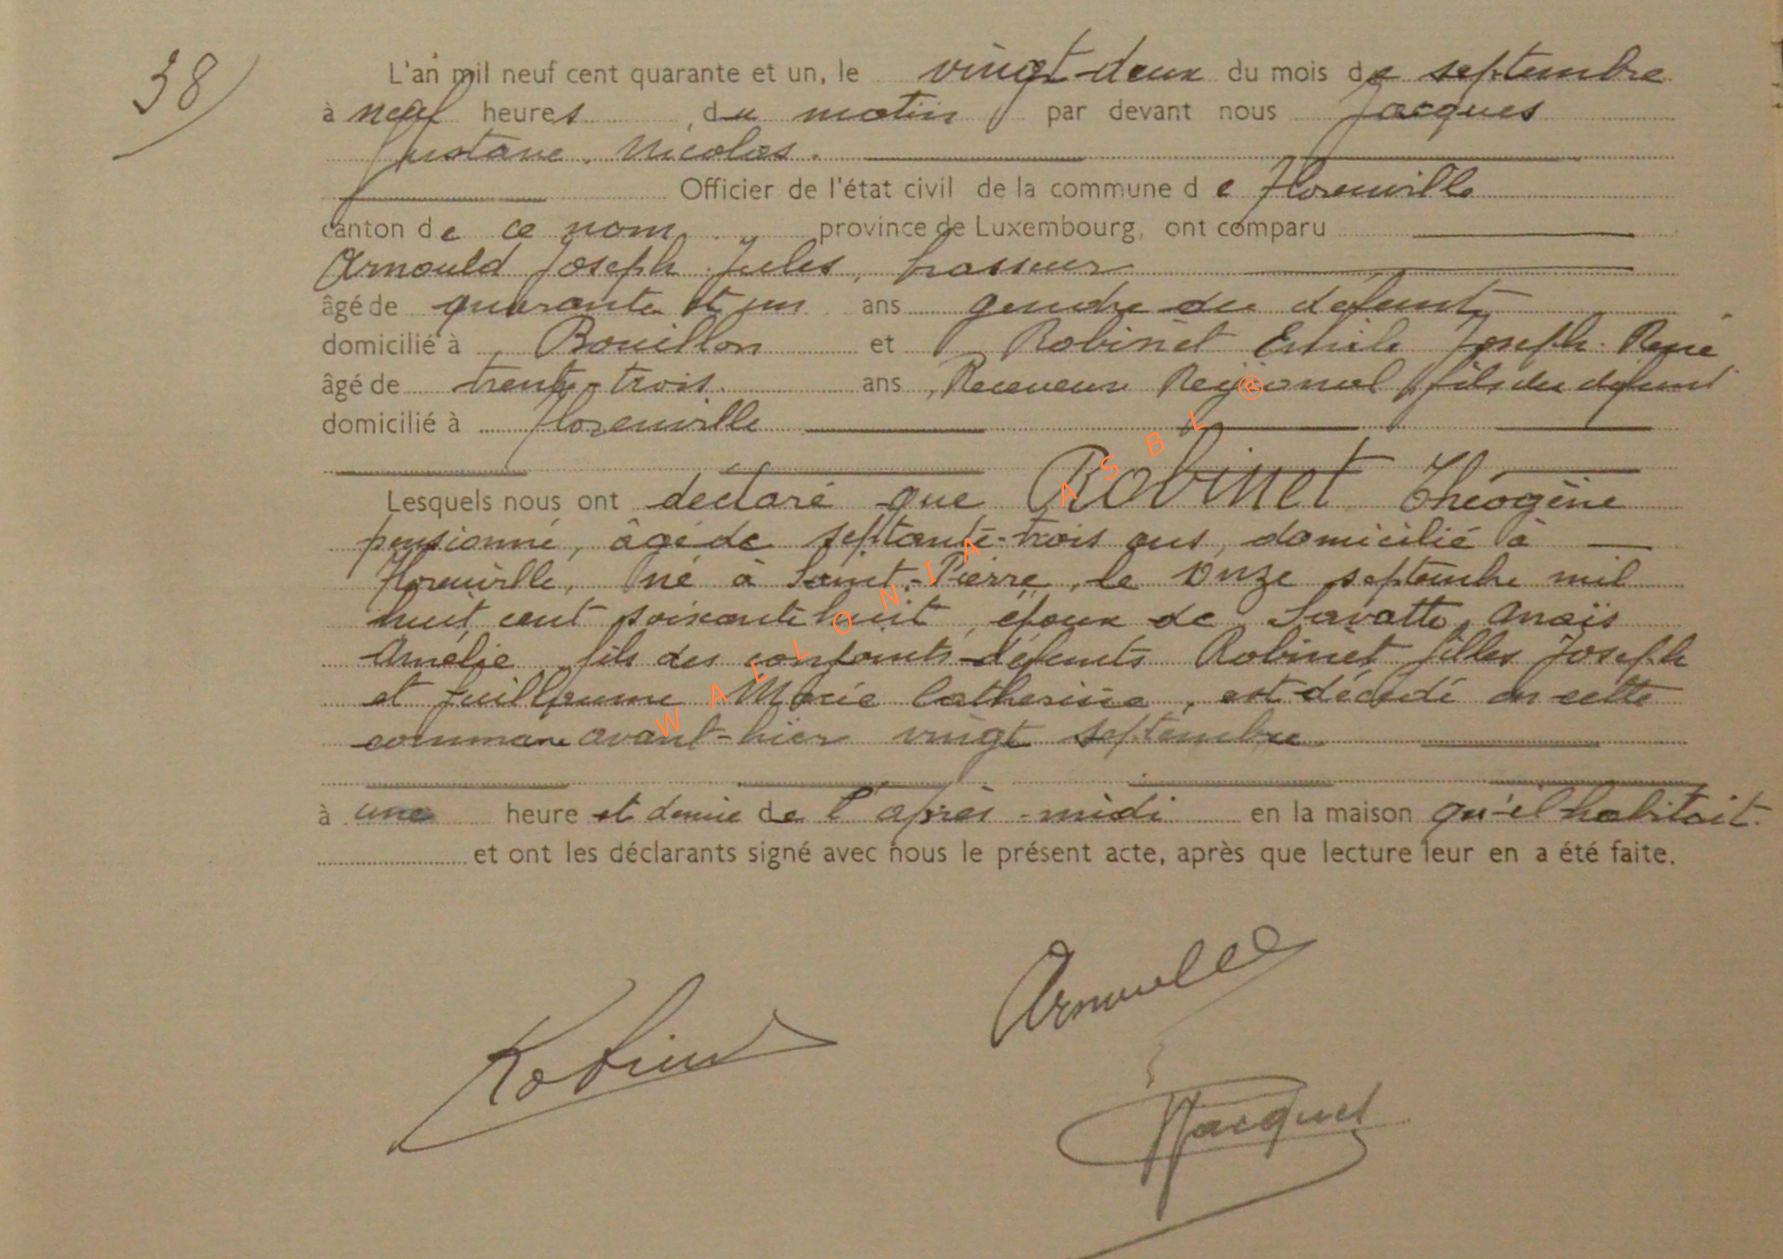 38
L'an mil neuf cent quarante et un, le vingt-deux du mois de septembre
à neuf heures du matin par devant nous Jacques
Gustave, Nicolas.
Officier de l'état civil de la commune de Florenville
canton de ce nom, province de Luxembourg, ont comparu
Arnould Joseph Jules, brasseur
âgé de quarante et un ans gendre du défunt
domicilié à Bouillon et Robinet Emile Joseph René
âgé de trente-trois ans, Receveur Régional, fils du défunt
domicilié à Florenville
Lesquels nous ont déclaré que Robinet Théogène
pensionné, âgé de septante-trois ans, domicilié à
Florenville, né à Saint-Pierre, le onze septembre mil
huit cent soixante huit, époux de Anaïs
Amélie, fils des conjoints défunts Robinet Gilles Joseph
et Guillaume Marie Catherine, est décédé en cette
commune avant-hier vingt septembre
à une heure et demie de l'après-midi en la maison qu'il habitait.
et ont les déclarants signé avec nous le présent acte, après que lecture leur en a été faite.
Arnould
Robinet
Jacques
WALLONIA ASBL ®